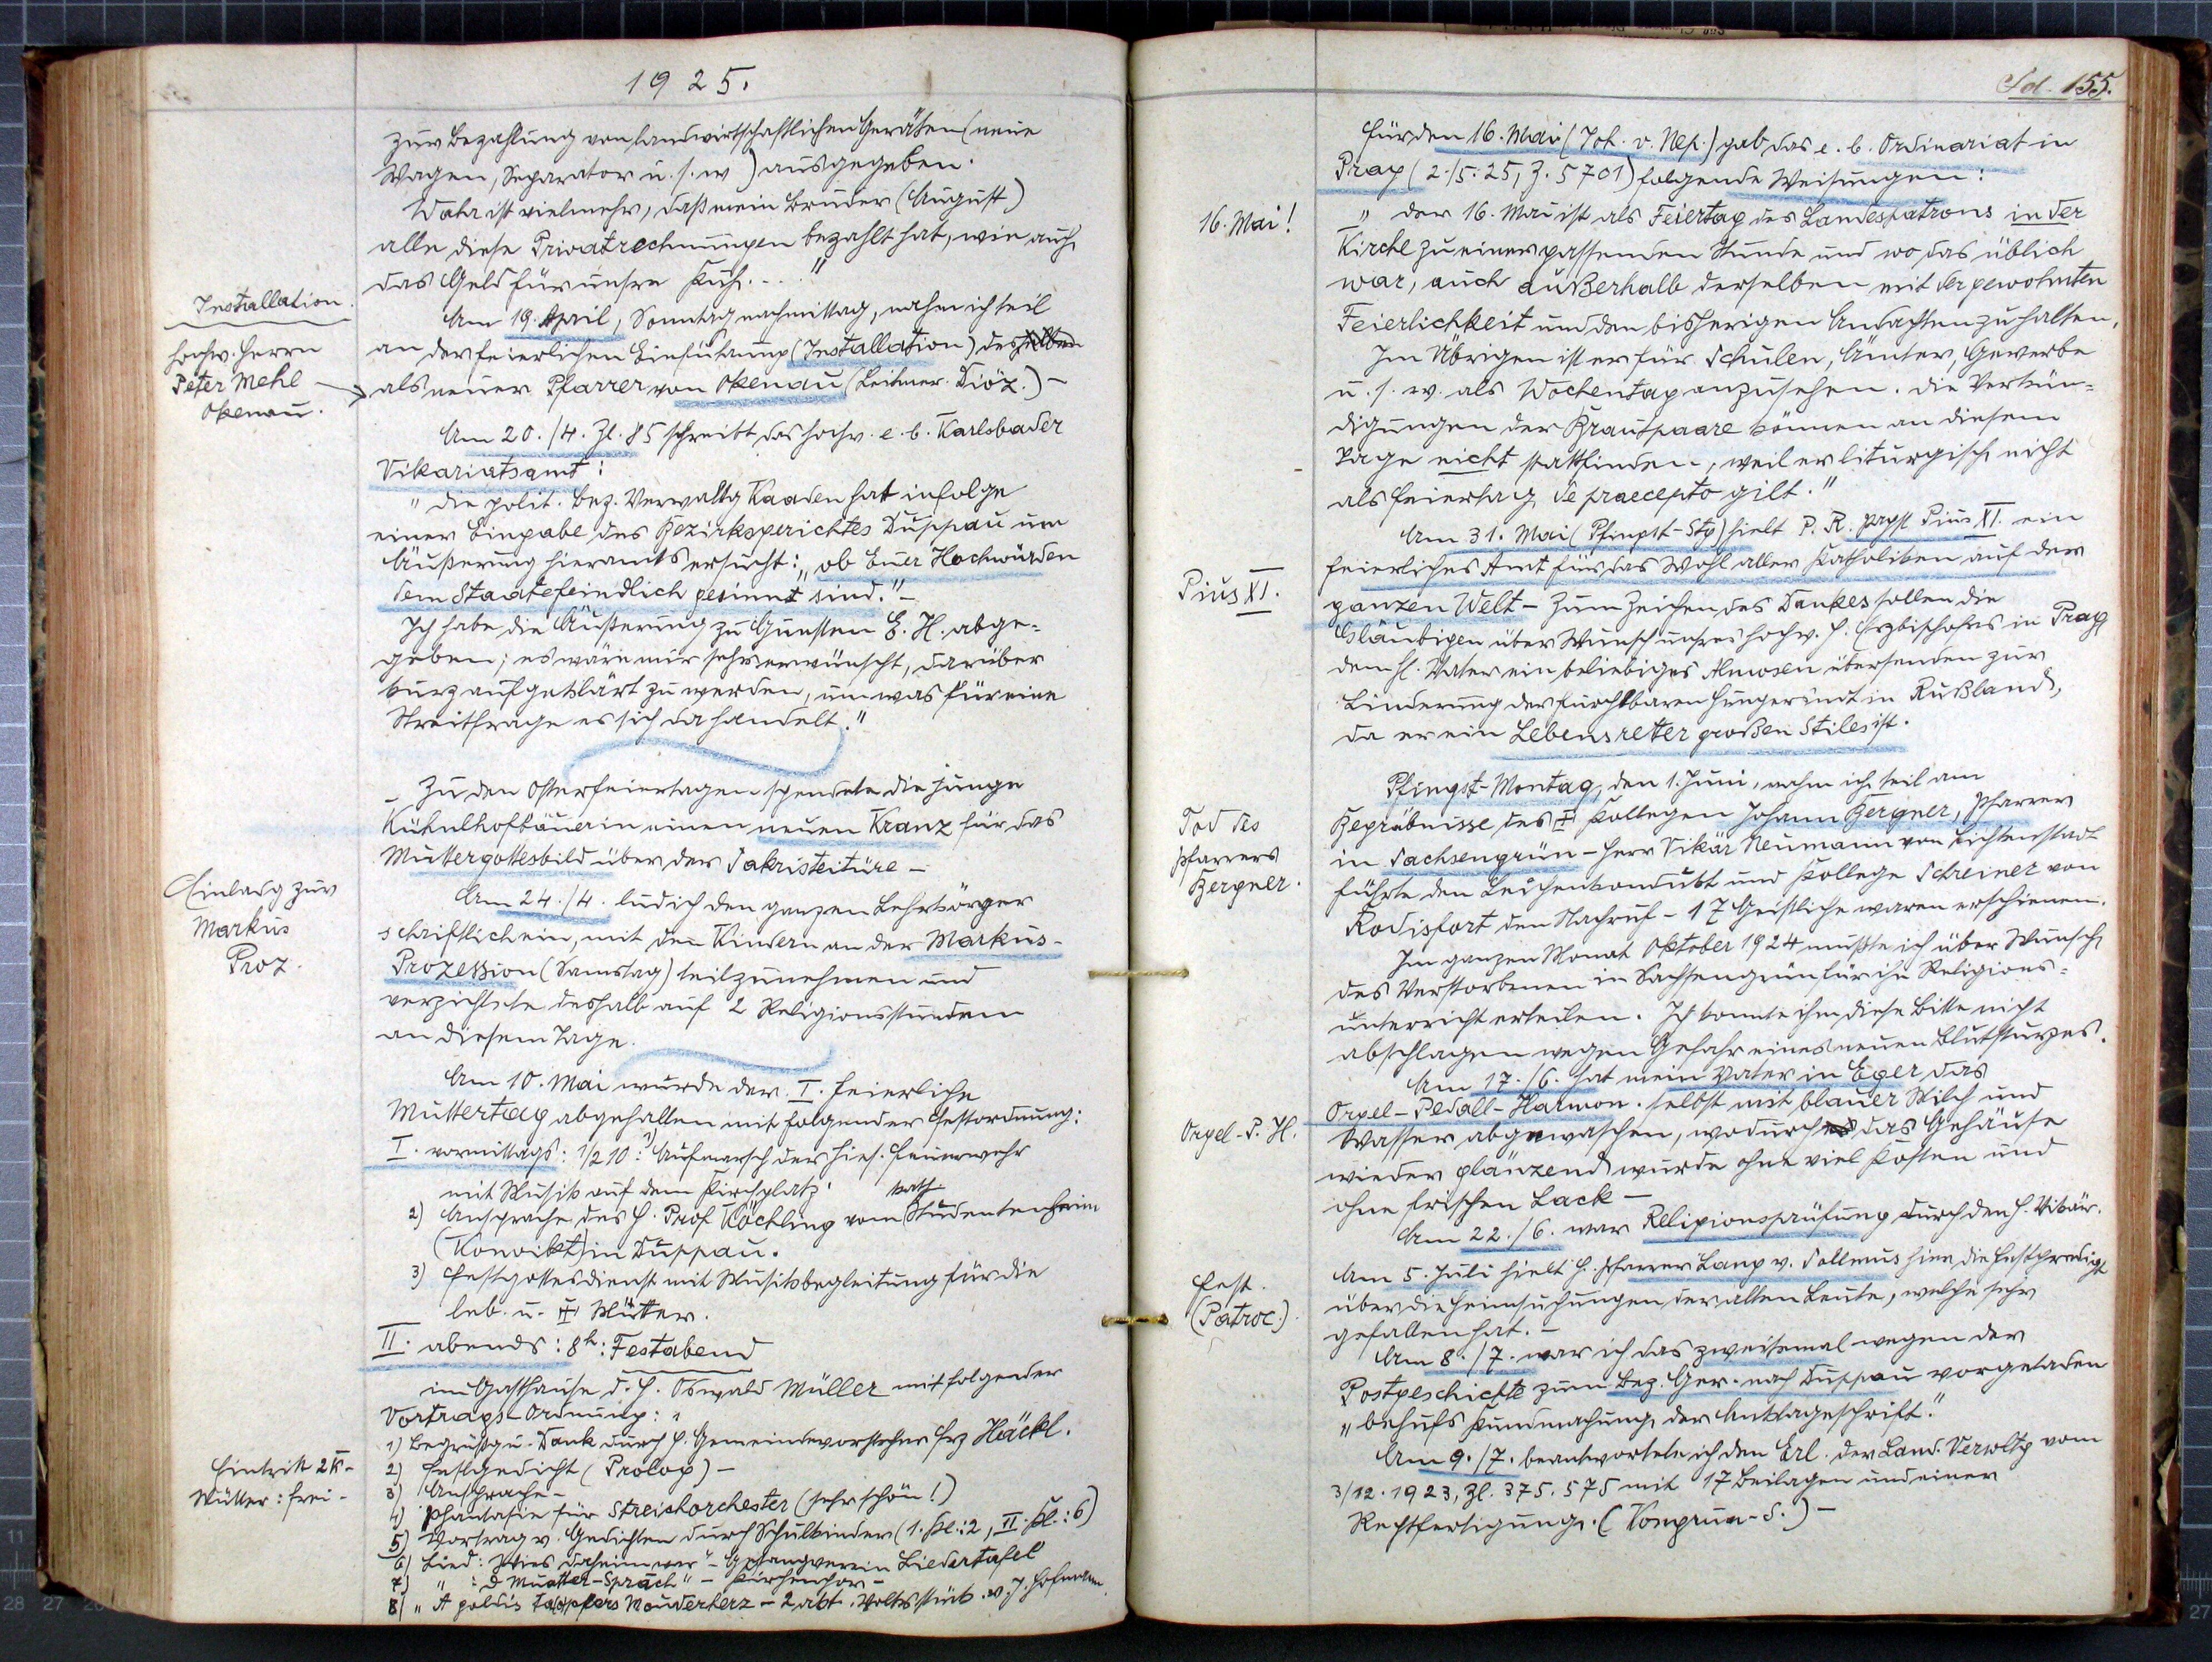 1925.
zur Bezahlung von landwirtschaftlichen Geräten (neue
Wagen, Separator u. s. w) ausgegeben.
Wahr ist vielmehr, daß mein Bruder (August)
alle diese Privatrechnungen bezahlt hat, wie auch
das Geld für unsre Kuh..."
Installation
hochw. Herrn
Peter Mehl
Okenau.
Am 19. April, Sonntag nachmittag, nahm ich teil
an der feierlichen Einführung (Installation) desselben
als neuer Pfarrer von Okenau (Leitmer. Diöz.) -
Am 20./4. Zl. 85 schreibt das hochw. e. b. Karlsbader
Vikariatsamt:
"Die polit. Bez. Verwaltg Kaaden hat infolge
einer Eingabe des Bezirksgerichtes Duppau um
Äußerung hieramts ersucht: „ob Euer Hochwürden
dem Staate feindlich gesinnt sind." -
Ich habe die Äußerung zu Gunsten E. H. abge=
geben; es wäre mir sehr erwünscht, darüber
kurz aufgeklärt zu werden, um was für eine
Streitfrage es sich da handelt."
- Zu den Osterfeiertagen spendete die junge
Kühnlhofbäuerin einen neuen Kranz für das
Muttergottesbild über der Sakristeitüre -
Einladg zur
Markus
Proz.
Am 24./4. lud ich den ganzen Lehrkörper
schriftlich ein, mit den Kindern an der Markus-
Prozession (Samstag) teilzunehmen und
verzichtete deshalb auf 2 Religionsstunden
an diesem Tage.
Am 10. Mai wurde der I. feierliche
Muttertag abgehalten mit folgender Festordnung:
I. vormittags: 1/2 10: 1) Aufmarsch der hies. Feuerwehr
mit Musik auf dem Kirchplatz.
2) Ansprache des H. Prof Köchling vom kath. Studentenheim
(Konvikt) in Duppau.
3) Festgottesdienst mit Musikbegleitung für die
leb. u. † Mütter.
II. abends: 8h: Festabend
im Gasthause d. H. Oswald Müller mit folgender
Vortrags-Ordnung:
1) Begrüßg u. Dank durch H. Gemeindevorsteher Frz Häckl.
Eintritt 2 K -
Mütter: frei -
2) Festgedicht (Prolog) -
3) Ansprache -
4) Phantasie für Streichorchester (sehr schön!)
5) Vortrag v. Gedichten durch Schulkinder (1. Kl.: 2, II. Kl.: 6)
6) Lied: „Wies daheim war" - Gesangverein Liedertafel
7) " : „D Muatter-Sprach" - Kirchenchor -
8) „A goldis Mouderherz - 2 akt. Volksstück v. J. Hofmann.
Fol. 155.
Für den 16. Mai (Joh. v. Nep.) gab das e. b. Ordinariat in
Prag (2./5. 25, Z. 5701) folgende Weisungen:
16. Mai!
"Der 16. Mai ist als Feiertag des Landespatrons in der
Kirche zu einer passenden Stunde und wo das üblich
war, auch außerhalb derselben mit der gewohnten
Feierlichkeit und den bisherigen Andachten zu halten.
Im Übrigen ist er für Schulen, Ämter, Gewerbe
u. s. w. als Wochentag anzusehen. Die Verkün=
digungen der Brautpaare können an diesem
Tage nicht stattfinden, weil er liturgisch nicht
als Feiertag de praecepto gilt."
Am 31. Mai (Pfingst-Stg) hielt P. R. Papst Pius XI. ein
feierliches Amt für das Wohl aller Katholiken auf der
Pius XI.
ganzen Welt - Zum Zeichen des Dankes sollen die
Gläubigen über Wunsch unsres hochw. H. Erzbischofes in Prag
dem hl. Vater ein beliebiges Almosen übersenden zur
Linderung der furchtbaren Hungersnot in Rußland,
da er ein Lebensretter großen Stiles ist.
Pfingst-Montag, den 1. Juni, nahm ich teil am
Tod des
Pfarrers
Bergner.
Begräbnisse des † Kollegen Johann Bergner, Pfarrer
in Sachsengrün - Herr Vikär Neumann von Lichtenstadt
führte den Leichenkondukt und Kollege Schreiner von
Rodisfort den Nachruf - 17 Geistliche waren erschienen.
Im ganzen Monat Oktober 1924 mußte ich über Wunsch
des Verstorbenen in Sachsengrün für ihn Religions=
unterricht erteilen. Ich konnte ihm diese Bitte nicht
abschlagen wegen Gefahr eines neuen Blutsturzes.
Am 17./6. hat mein Vater in Eger das
Orgel-P. H.
Orgel-Pedall-Harmon. selbst mit blauer Milch und
Wasser abgewaschen, wodurch das Gehäuse
wieder glänzend wurde ohne viel Kosten und
ohne frischen Lack -
Am 22./6. war Religionsprüfung durch den H. Vikär.
Fest.
(Patroc.)
Am 5. Juli hielt H. Pfarrer Lang v. Sollmus hier die Festpredigt
über die Heimsuchungen der alten Leute, welche sehr
gefallen hat. -
Am 8./7. war ich das zweitemal wegen der
Postgeschichte zum Bez. Ger. nach Duppau vorgeladen
„behufs Kundmachung der Anklageschrift."
Am 9./7. beantwortete ich den Erl. der Land. Verwltg vom
3/12. 1923, Zl. 375.575 mit 17 Beilagen und einer
Rechtfertigung. (Kongrua-S.) -